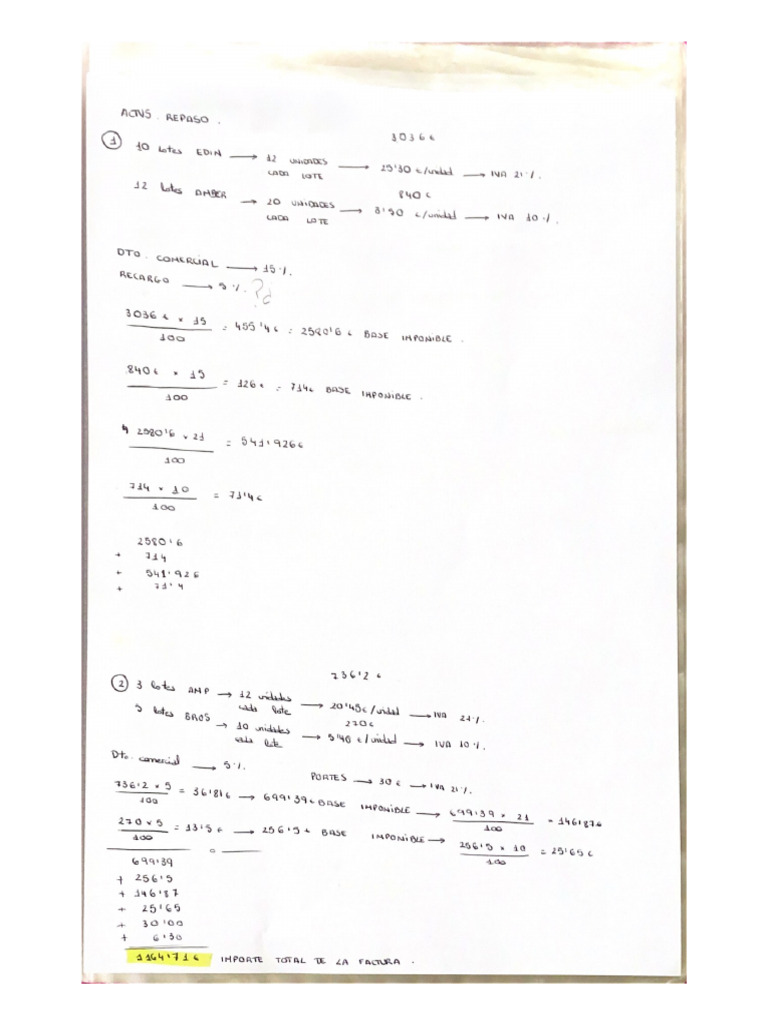 ACTVS. REPASO.
3036€
① 10 lotes EDIN → 12 UNIDADES CADA LOTE → 25'30 €/unidad → IVA 21%.
840€
12 lotes AMBER → 20 UNIDADES CADA LOTE → 3'50 €/unidad → IVA 10%.
DTO. COMERCIAL → 15%.
RECARGO → 5%. ?¿
3036€ x 15 / 100 = 455'4€ = 2580'6€ BASE IMPONIBLE.
840€ x 15 / 100 = 126€ = 714€ BASE IMPONIBLE.
2580'6 x 21 / 100 = 541'926€
714 x 10 / 100 = 71'4€
2580'6
+ 714
+ 541'926
+ 71'4
736'2€
② 3 lotes ANP → 12 unidades cada lote → 20'45€/unidad → IVA 21%.
270€
5 lotes BROS → 10 unidades cada lote → 5'40€/unidad → IVA 10%.
Dto. comercial → 5%.
PORTES → 30€ → IVA 21%.
736'2 x 5 / 100 = 36'81€ → 699'39€ BASE IMPONIBLE → 699'39 x 21 / 100 = 146'87€
270 x 5 / 100 = 13'5€ → 256'5€ BASE IMPONIBLE → 256'5 x 10 / 100 = 25'65€
699'39
+ 256'5
+ 146'87
+ 25'65
+ 30'00
+ 6'30
1164'71€ IMPORTE TOTAL DE LA FACTURA.